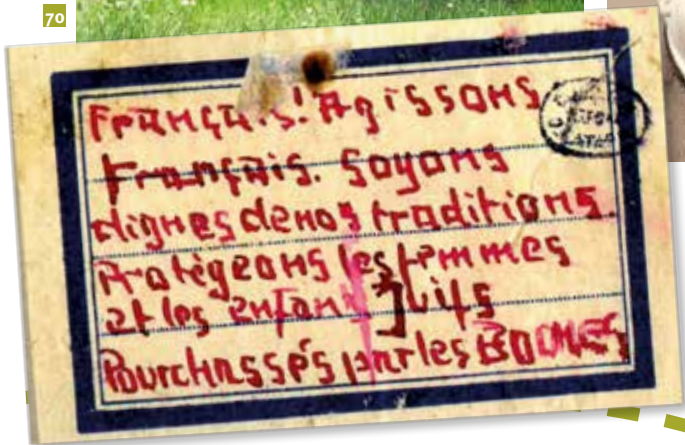 70
Français! Agissons
Français. Soyons
dignes de nos traditions.
Protégeons les femmes
et les enfants Juifs
Pourchassés par les BOCHES